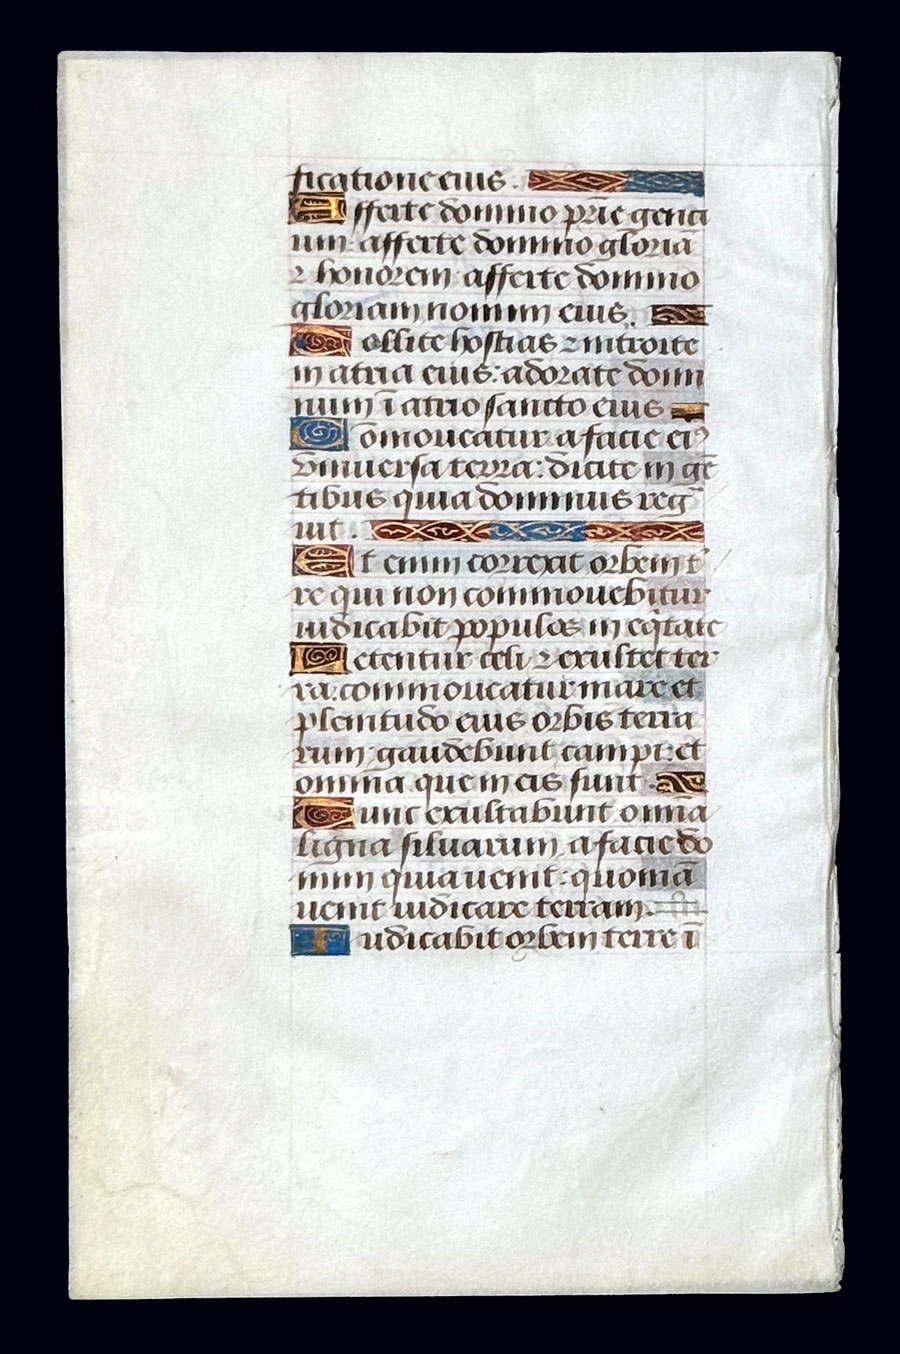 ficatione eius.
Afferte domino pr̄ie genti
um: afferte domino gloriā
⁊ honorem afferte domino
gloriam nomini eius.
Tollite hostias ⁊ introite
in atria eius: adorate domi
num ī atrio sancto eius
Comoueatur a facie eiꝰ
vniuersa terra: dicite in gē
tibus quia dominus reg
uit.
Et enim correxit orbem t̄
re qui non commouebitur
iudicabit populos in eq̄tate
Letentur celi ⁊ exultet ter
ra: commoueatur mare et
plenitudo eius orbis terra
rum: gaudebunt campi: et
omnia que in eis sunt.
Tunc exultabunt omīa
ligna siluarum a facie do
mini quia uenit: quoniā
uenit iudicare terram.
Iudicabit orbem terre ī